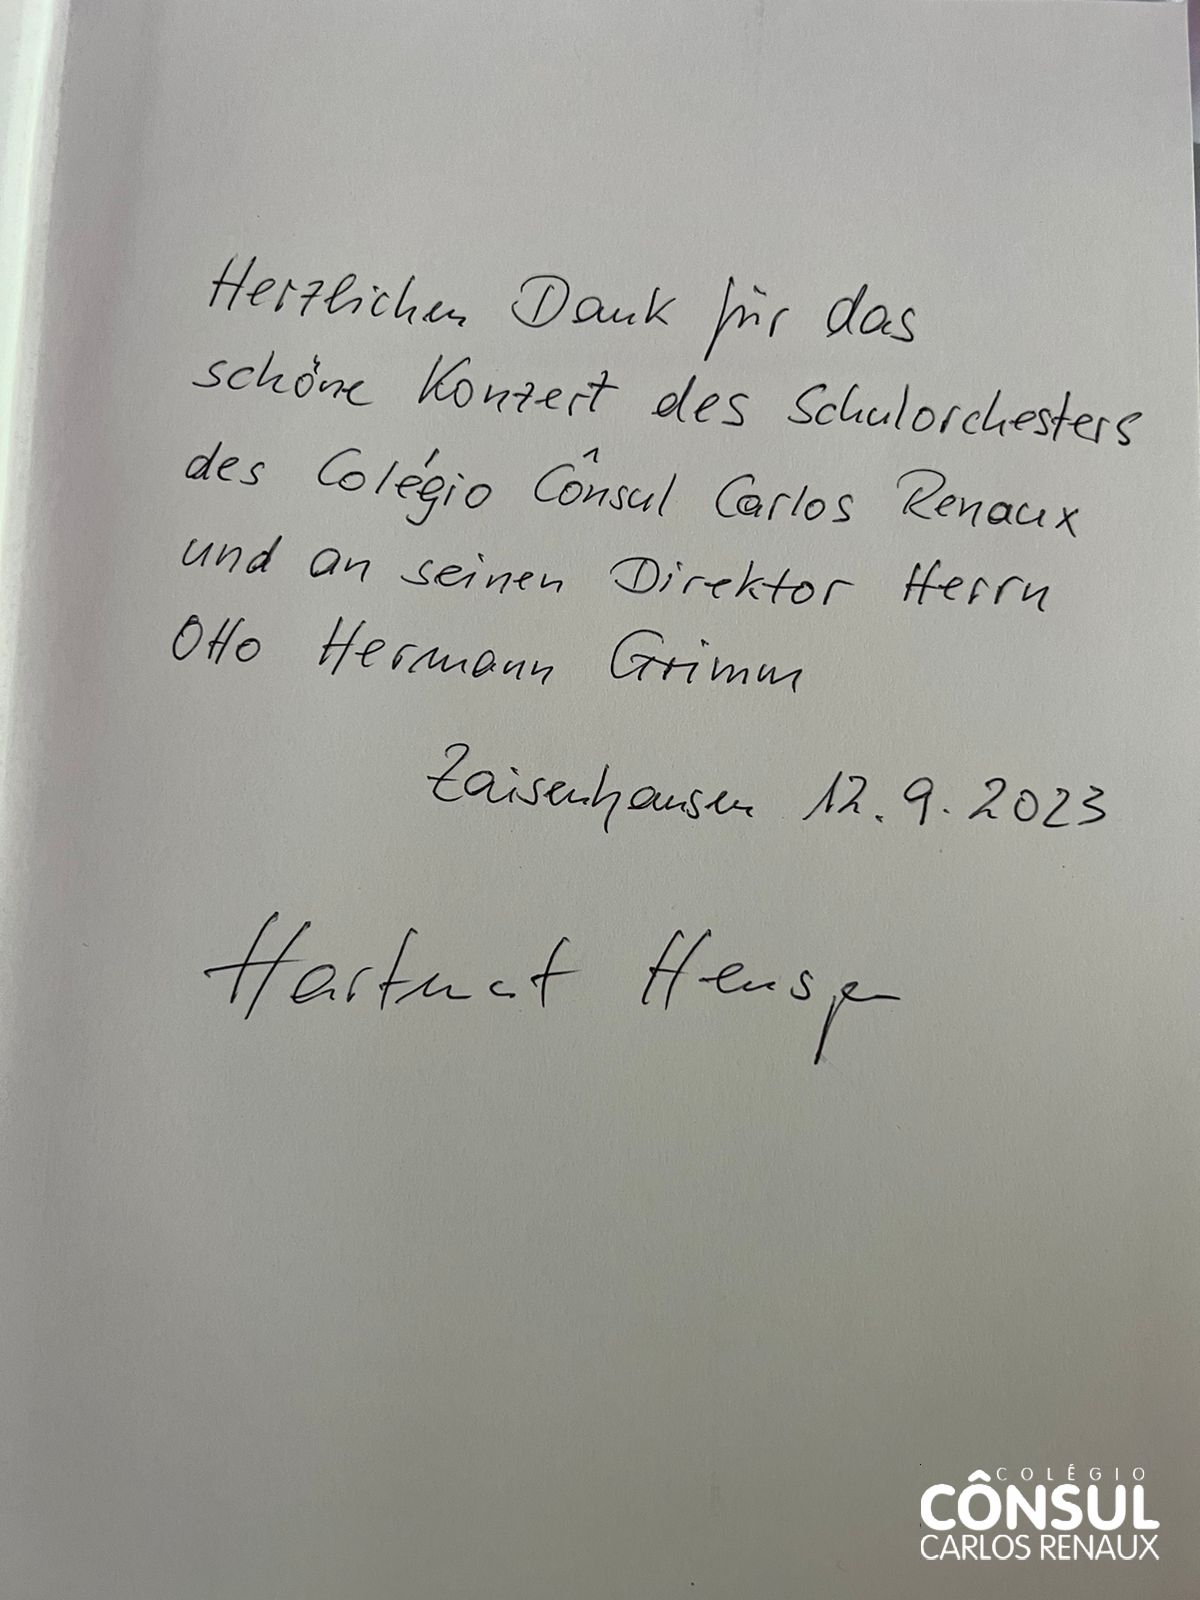 Herzlichen Dank für das
schöne Konzert des Schulorchesters
des Colégio Cônsul Carlos Renaux
und an seinen Direktor Herrn
Otto Hermann Grimm
Zaisenhausen 12.9.2023
Hartmut
COLÉGIO
CÔNSUL
CARLOS RENAUX